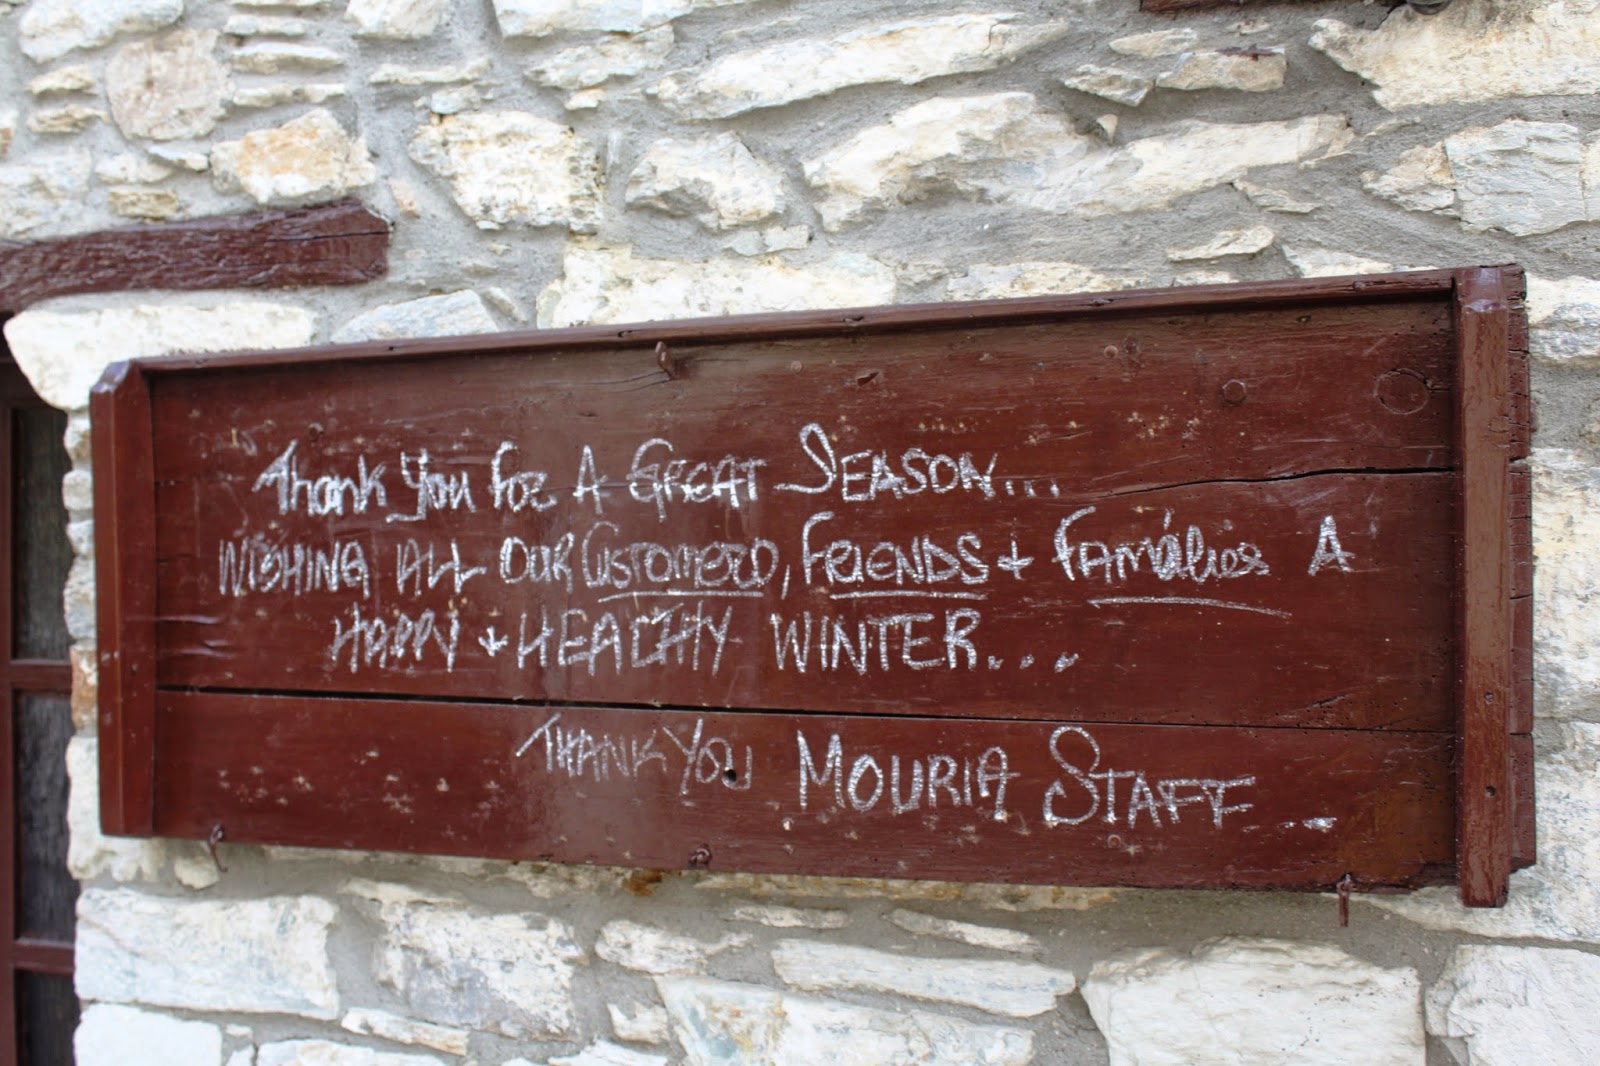 Thank You for A GREAT SEASON...
WISHING ALL OUR CUSTOMERS, FRIENDS + FAMilies A
HAPPY + HEALTHY WINTER....
THANK YOU MOURIA STAFF...